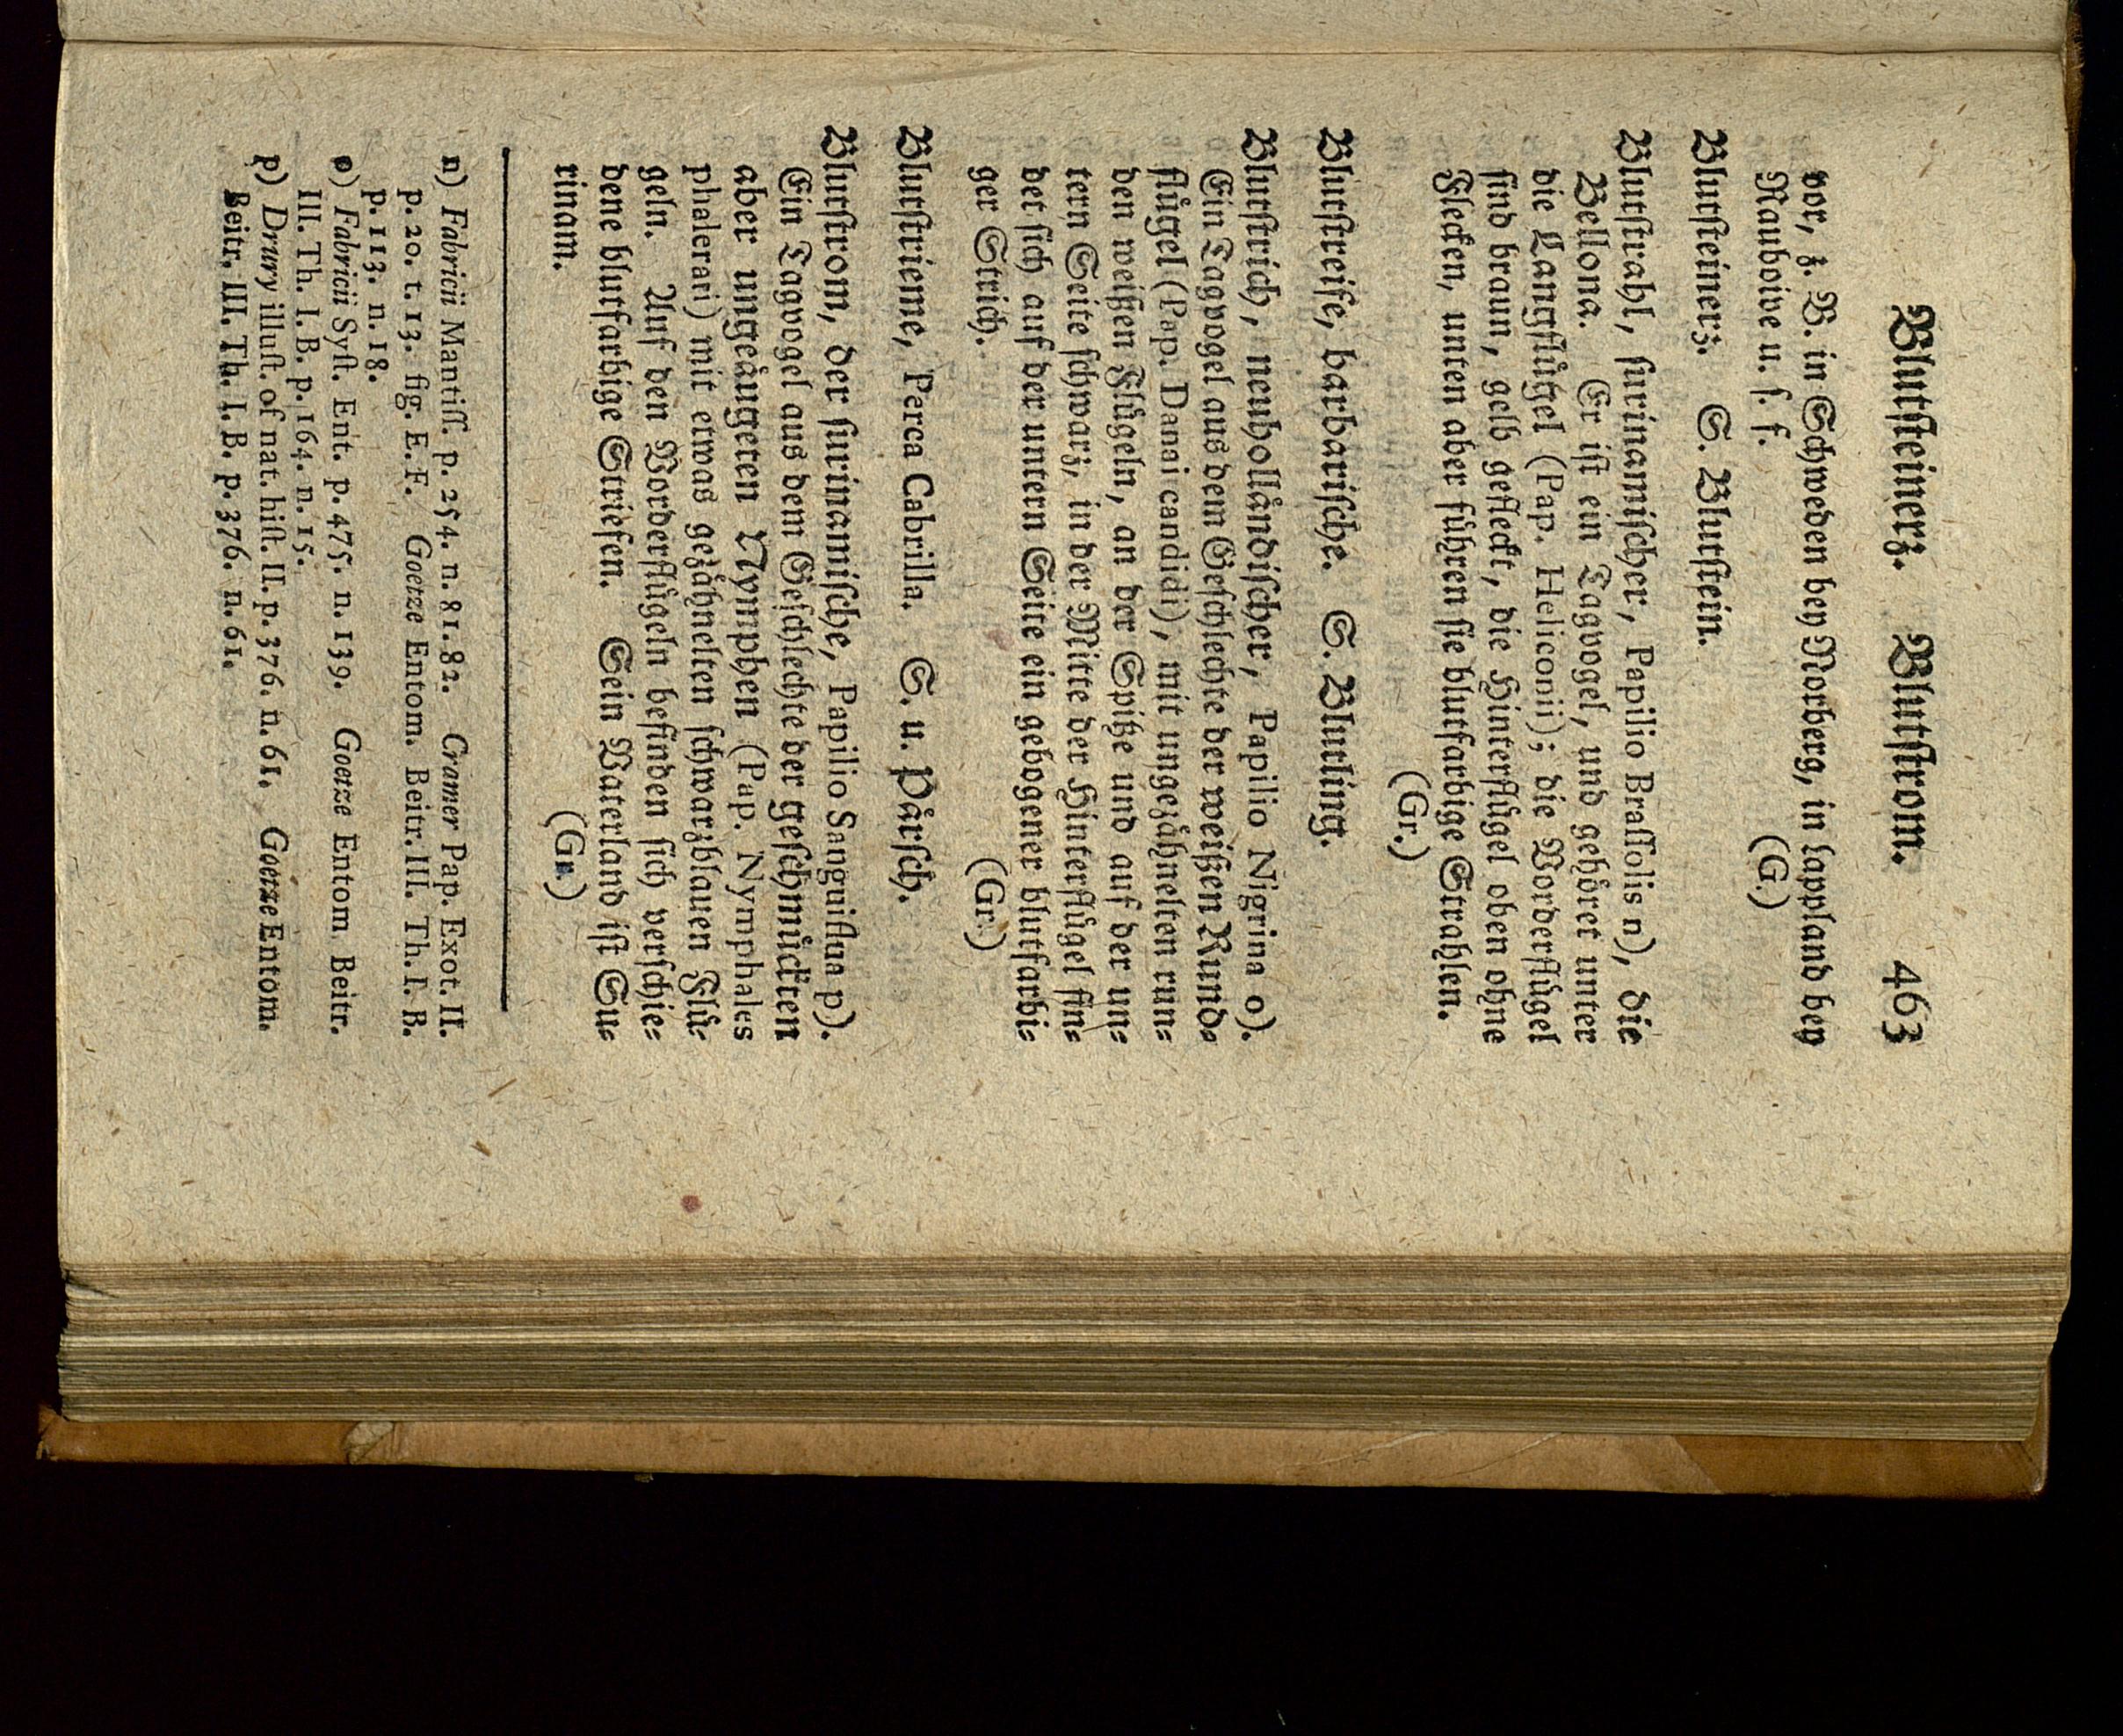 Blutſteinerz. Blutſtrom. 463
vor, z. B. in Schweden bey Norberg, in Lappland bey
Nauboive u. ſ. f. (G.)
Blutſteinerz. S. Blutſtein.
Blutſtrahl, ſurinamiſcher, Papilio Braſſolis n), die
Bellona. Er iſt ein Tagvogel, und gehöret unter
die Langflügel (Pap. Heliconii); die Vorderflügel
ſind braun, gelb gefleckt, die Hinterflügel oben ohne
Flecken, unten aber führen ſie blutfarbige Strahlen.
(Gr.)
Blutſtreife, barbariſche. S. Blutling.
Blutſtrich, neuholländiſcher, Papilio Nigrina o).
Ein Tagvogel aus dem Geſchlechte der weißen Rund-
flügel (Pap. Danai candidi), mit ungezähnelten run-
den weißen Flügeln, an der Spitze und auf der un-
tern Seite ſchwarz, in der Mitte der Hinterflügel fin-
det ſich auf der untern Seite ein gebogener blutfarbi-
ger Strich. (Gr.)
Blutſtrieme, Perca Cabrilla. S. u. Pårſch.
Blutſtrom, der ſurinamiſche, Papilio Sanguiflua p).
Ein Tagvogel aus dem Geſchlechte der geſchmückten
aber ungeäugeten Nymphen (Pap. Nymphales
phalerari) mit etwas gezähnelten ſchwarzblauen Flü-
geln. Auf den Vorderflügeln befinden ſich verſchie-
dene blutfarbige Striefen. Sein Vaterland iſt Su-
rinam. (Gr.)
n) Fabricii Mantiſſ. p. 254. n. 81. 82. Cramer Pap. Exot. II.
p. 20. t. 13. fig. E. F. Goetze Entom. Beitr. III. Th. I. B.
p. 113. n. 18.
o) Fabricii Syſt. Ent. p. 475. n. 139. Goetze Entom Beitr.
III. Th. I. B. p. 164. n. 15.
p) Drury illuſt. of nat. hiſt. II. p. 376. n. 61. Goetze Entom.
Beitr. III. Th. I. B. p. 376. n. 61.